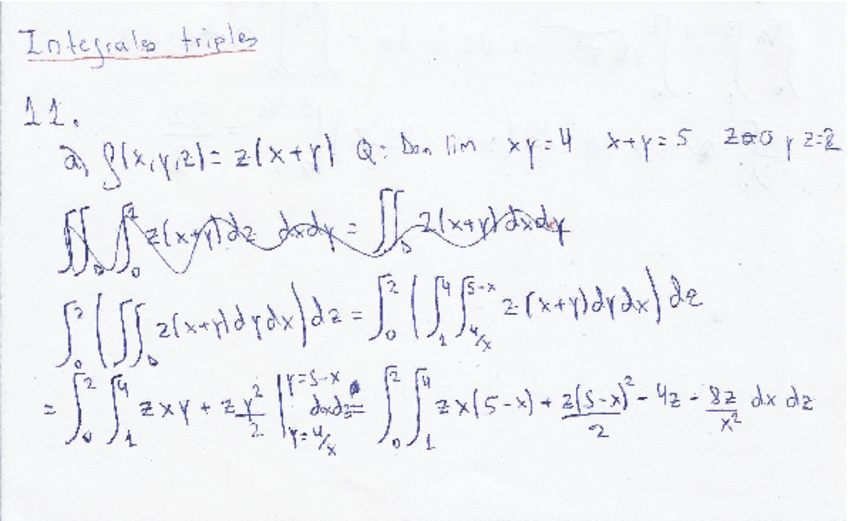 Integrales triples
11.
a) f(x,y,z) = z(x+y) Q: Dom lim xy=4 x+y=5 z=0 y z=2
∬_D ∫_0^2 z(x+y)dz dxdy = ∬_D z(x+y)dxdy
∫_0^2 (∬_D z(x+y)dydx)dz = ∫_0^2 (∫_1^4 ∫_{4/x}^{5-x} z(x+y)dydx)dz
= ∫_0^2 ∫_1^4 zxy + z y²/2 |_{y=4/x}^{y=5-x} dxdz = ∫_0^2 ∫_1^4 zx(5-x) + z(5-x)²/2 - 4z - 8z/x² dx dz